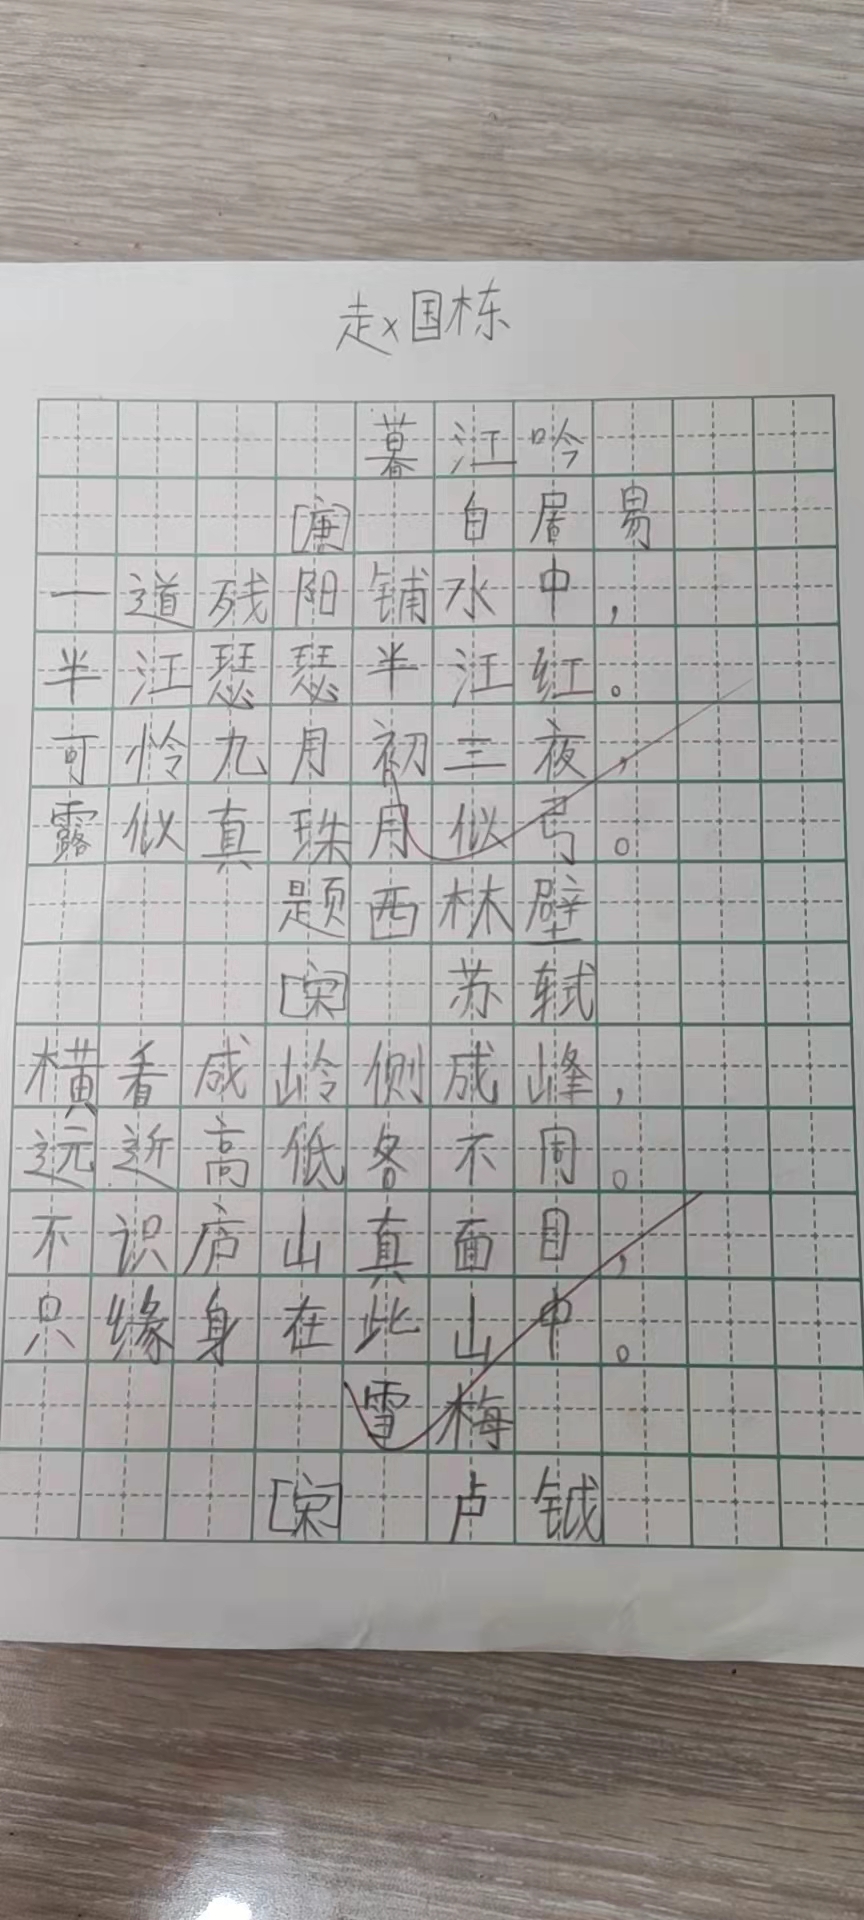 赵国栋
暮江吟
[唐] 白居易
一道残阳铺水中，
半江瑟瑟半江红。
可怜九月初三夜，
露似真珠月似弓。
题西林壁
[宋] 苏轼
横看成岭侧成峰，
远近高低各不同。
不识庐山真面目，
只缘身在此山中。
雪梅
[宋] 卢钺